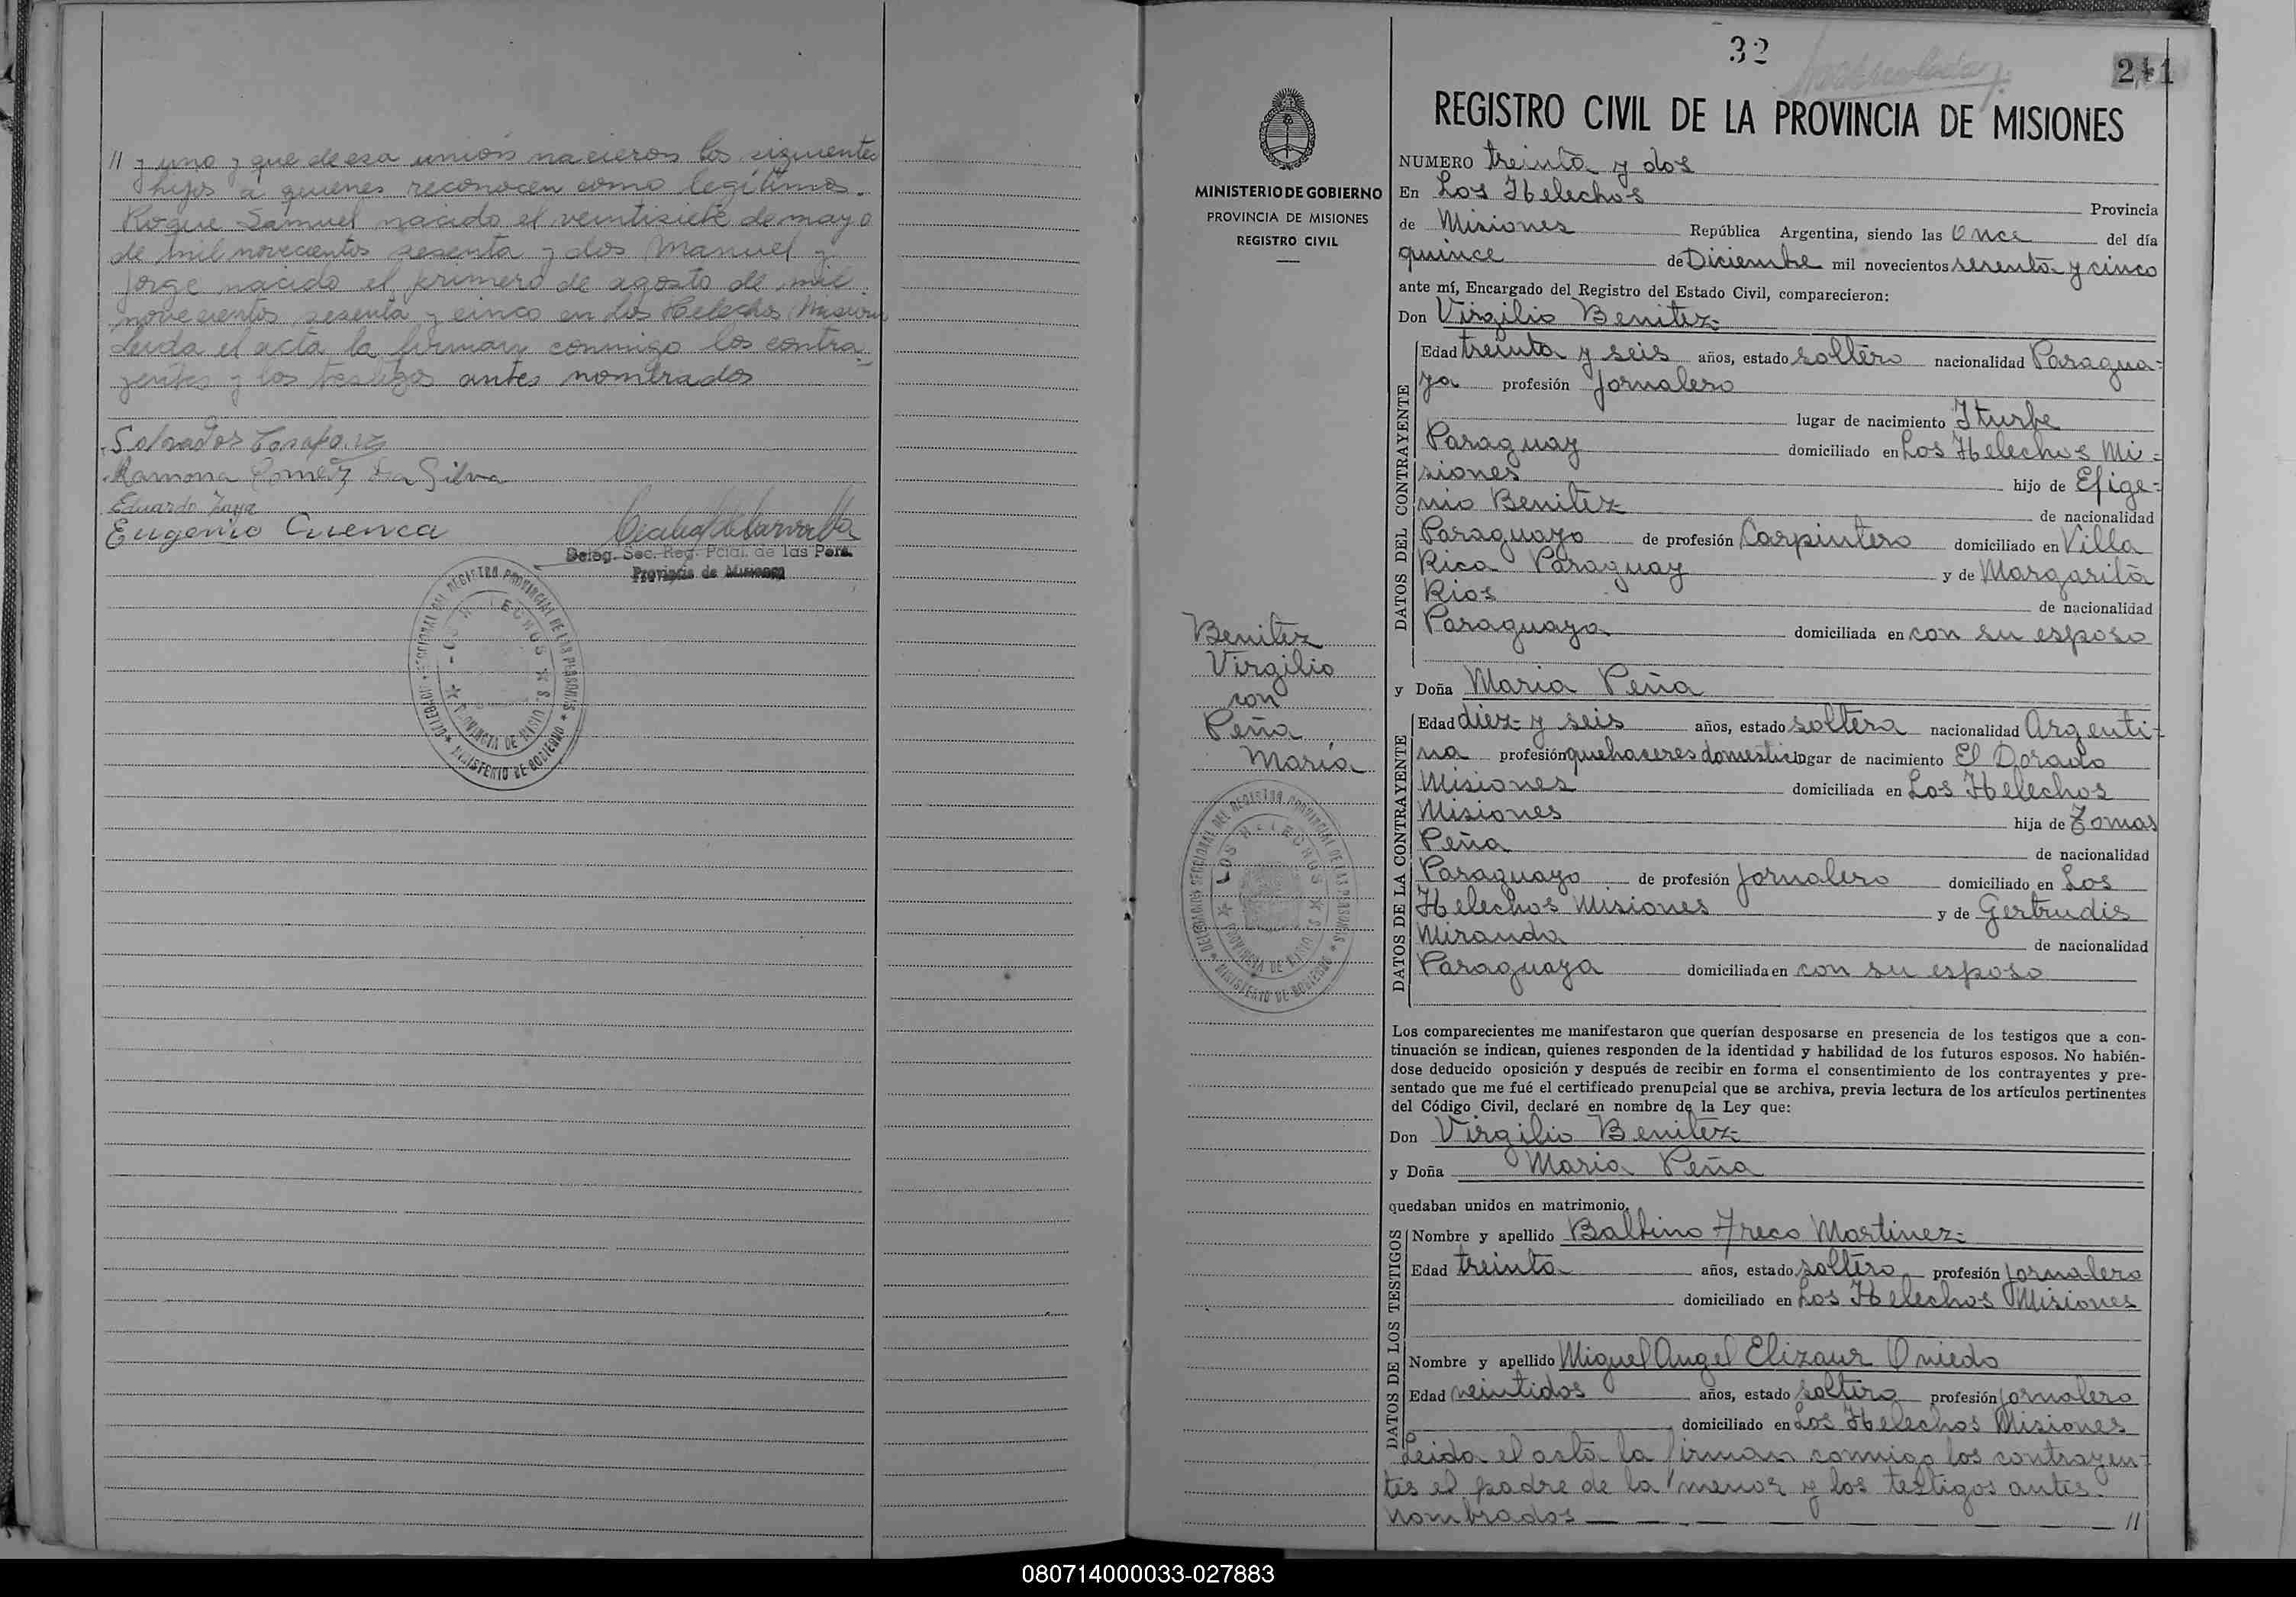 // y uno y que de esa unión nacieron los siguientes
hijos a quienes reconocen como legítimos.
Roque Samuel nacido el veintisiete de mayo
de mil novecientos sesenta y dos Manuel y
Jorge nacido el primero de agosto de mil
novecientos sesenta y cinco en Los Helechos Misiones
Leida el acta la firman conmigo los contra-
yentes y los testigos antes nombrados
Salvador
Ramona Gomez Da Silva
Eduardo
Eugenio Cuenca
Deleg. Sec. Reg. Pcial. de las Pers.
Provincia de Misiones
DELEGACION SECCIONAL DEL REGISTRO PROVINCIAL DE LAS PERSONAS * MINISTERIO DE GOBIERNO *
LOS HELECHOS * PROVINCIA DE MISIONES *
32
241
REGISTRO CIVIL DE LA PROVINCIA DE MISIONES
MINISTERIO DE GOBIERNO
PROVINCIA DE MISIONES
REGISTRO CIVIL
NUMERO treinta y dos
En Los Helechos Provincia
de Misiones República Argentina, siendo las once del día
quince de Diciembre mil novecientos sesenta y cinco
ante mí, Encargado del Registro del Estado Civil, comparecieron:
Don Virgilio Benitez=
DATOS DEL CONTRAYENTE
Edad treinta y seis años, estado soltero nacionalidad Paragua=
ya profesión Jornalero
lugar de nacimiento Iturbe
Paraguay domiciliado en Los Helechos Mi=
siones hijo de Efige=
nio Benitez de nacionalidad
Paraguayo de profesión Carpintero domiciliado en Villa
Rica Paraguay y de Margarita
Rios de nacionalidad
Paraguaya domiciliada en con su esposo
Benitez
Virgilio
con
Peña
Maria
y Doña Maria Peña
DATOS DE LA CONTRAYENTE
Edad diez y seis años, estado soltera nacionalidad Argenti-
na profesión quehaceres domestico lugar de nacimiento El Dorado
Misiones domiciliada en Los Helechos
Misiones hija de Tomas
Peña de nacionalidad
Paraguayo de profesión Jornalero domiciliado en Los
Helechos Misiones y de Gertrudis
Miranda de nacionalidad
Paraguaya domiciliada en con su esposo
DELEGACION SECCIONAL DEL REGISTRO PROVINCIAL DE LAS PERSONAS * MINISTERIO DE GOBIERNO *
LOS HELECHOS * PROVINCIA DE MISIONES *
Los comparecientes me manifestaron que querían desposarse en presencia de los testigos que a con-
tinuación se indican, quienes responden de la identidad y habilidad de los futuros esposos. No habién-
dose deducido oposición y después de recibir en forma el consentimiento de los contrayentes y pre-
sentado que me fué el certificado prenupcial que se archiva, previa lectura de los artículos pertinentes
del Código Civil, declaré en nombre de la Ley que:
Don Virgilio Benitez=
y Doña Maria Peña
quedaban unidos en matrimonio.
DATOS DE LOS TESTIGOS
Nombre y apellido Balbino Freco Martinez=
Edad treinta años, estado soltero profesión Jornalero
domiciliado en Los Helechos Misiones
Nombre y apellido Miguel Angel Elizaur Oviedo
Edad veintidos años, estado soltero profesión Jornalero
domiciliado en Los Helechos Misiones
Leida el acta la firman conmigo los contrayen-
tes el padre de la menor y los testigos antes
nombrados — — — — — //
080714000033-027883